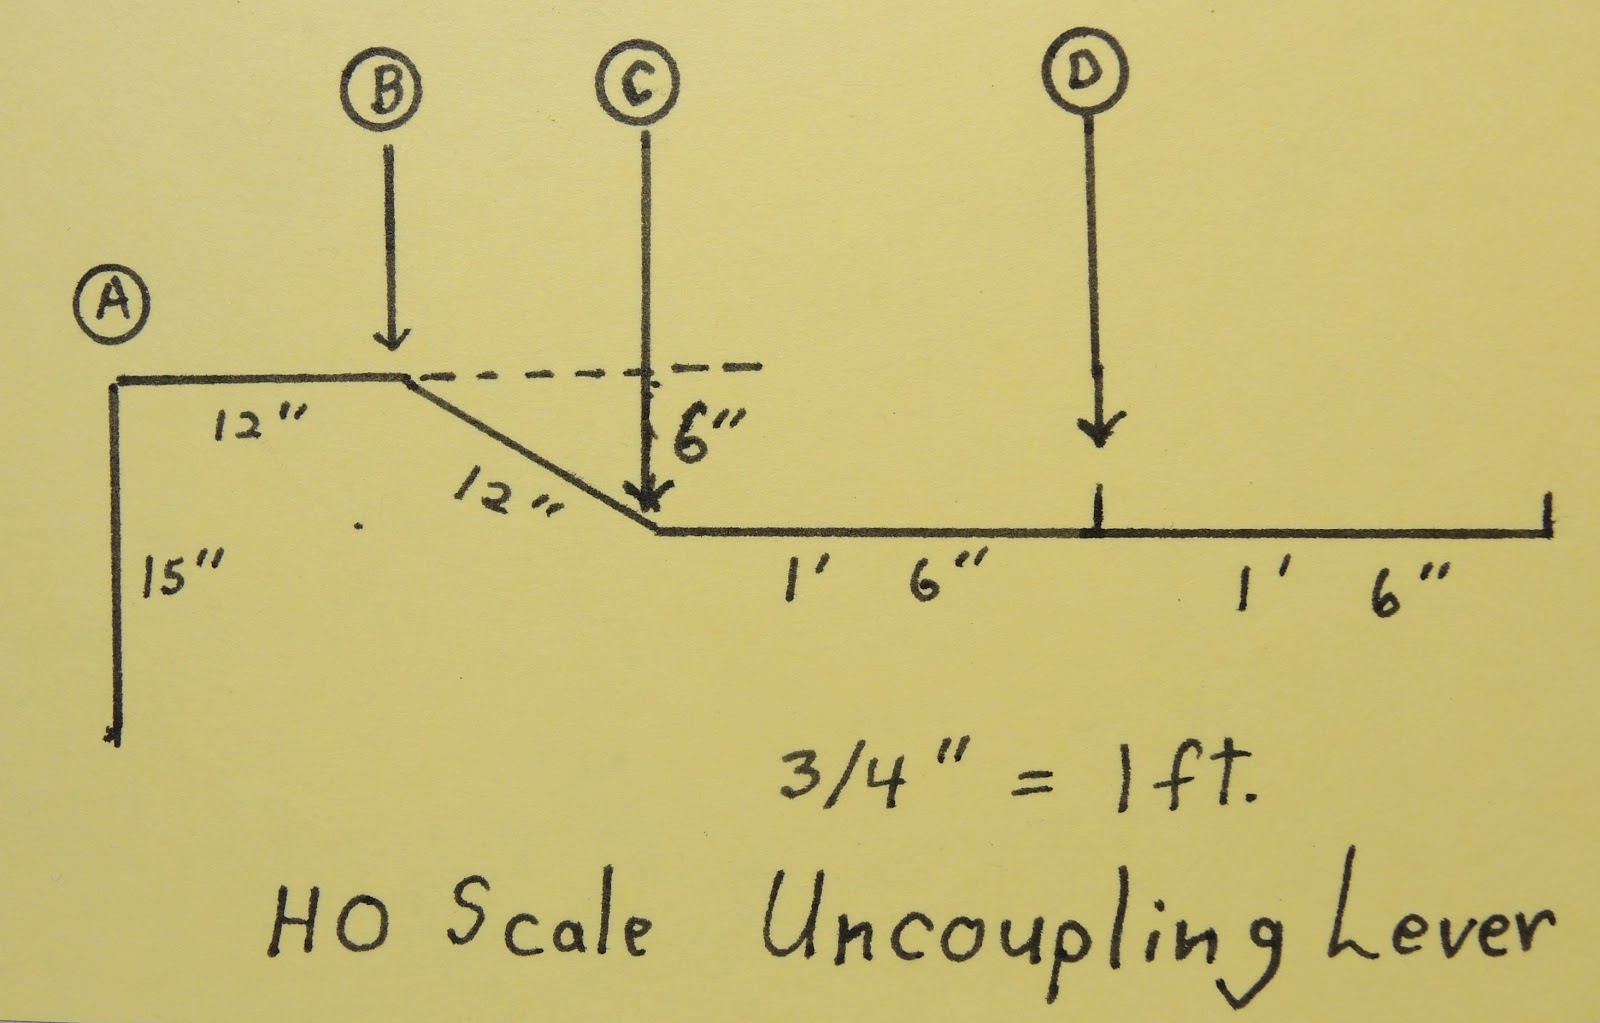 B
C
D
A
12"
6"
12"
15"
1' 6"
1' 6"
3/4" = 1ft.
HO Scale Uncoupling Lever